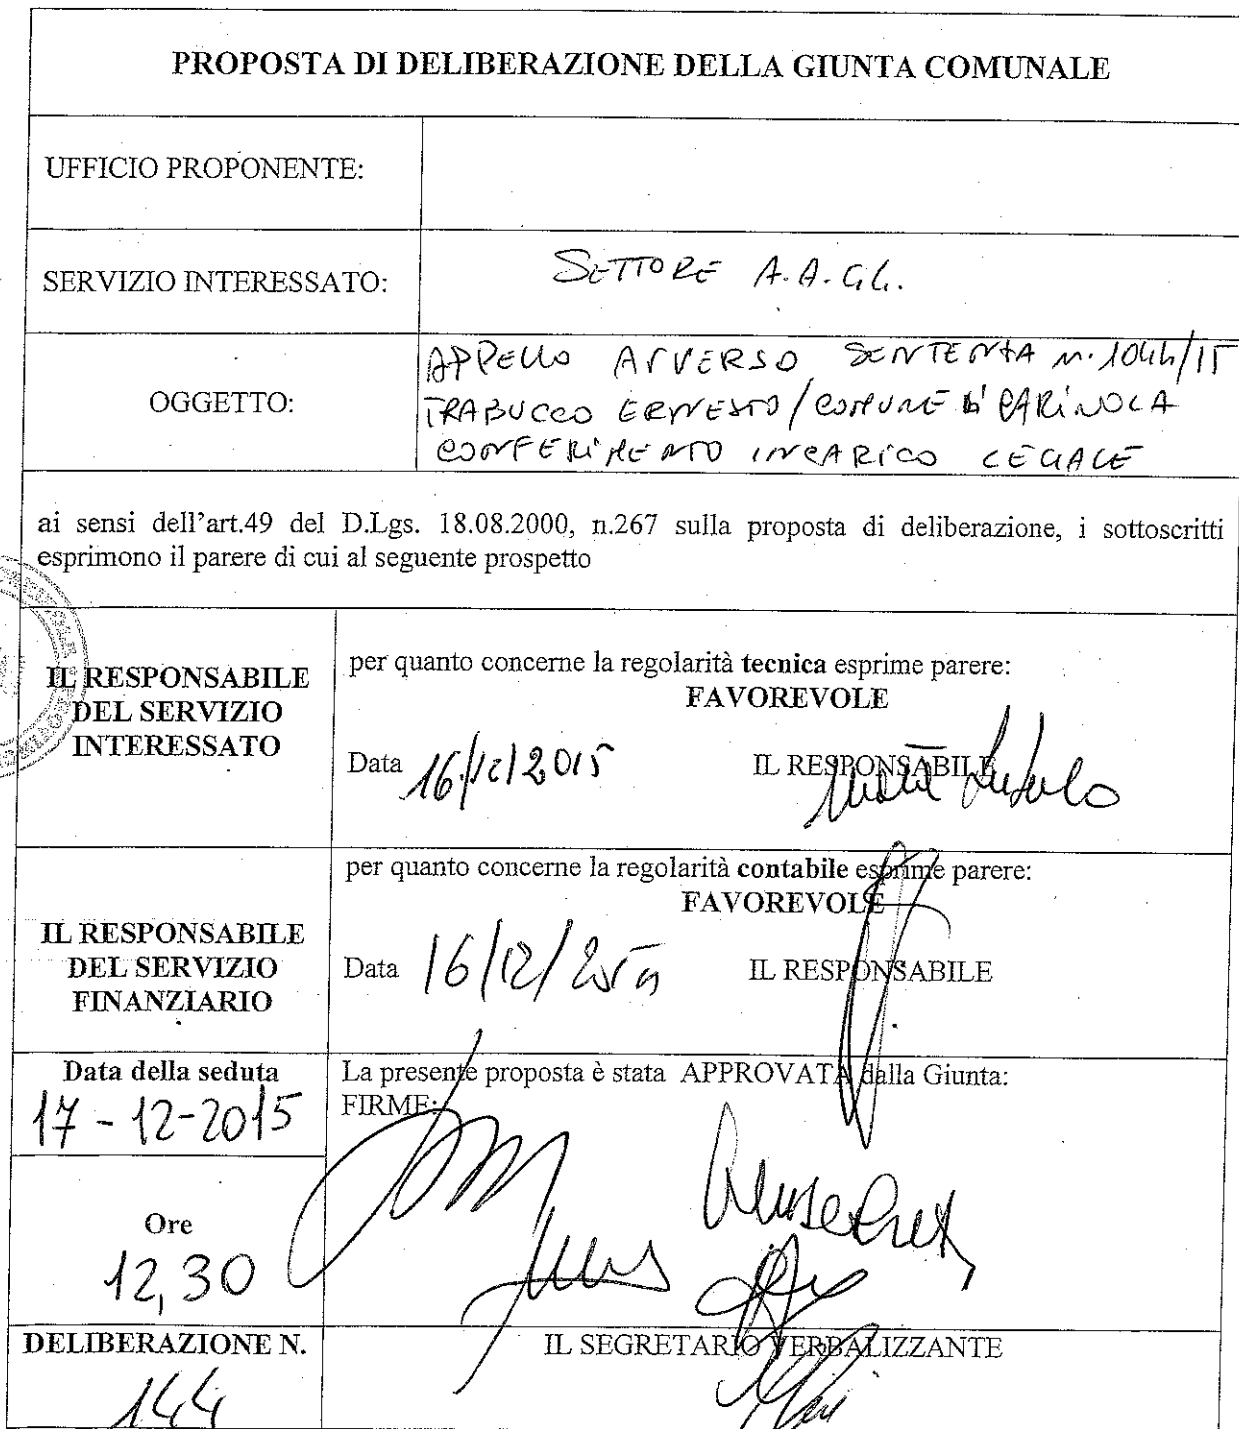 PROPOSTA DI DELIBERAZIONE DELLA GIUNTA COMUNALE
UFFICIO PROPONENTE:
SERVIZIO INTERESSATO:
SETTORE A.A.GG.
OGGETTO:
APPELLO AVVERSO SENTENZA n. 1044/15
TRABUCCO ERNESTO/COMUNE DI CARINOLA
CONFERIMENTO INCARICO LEGALE
ai sensi dell'art.49 del D.Lgs. 18.08.2000, n.267 sulla proposta di deliberazione, i sottoscritti
esprimono il parere di cui al seguente prospetto
IL RESPONSABILE
DEL SERVIZIO
INTERESSATO
per quanto concerne la regolarità tecnica esprime parere:
FAVOREVOLE
Data 16/12/2015 IL RESPONSABILE
IL RESPONSABILE
DEL SERVIZIO
FINANZIARIO
per quanto concerne la regolarità contabile esprime parere:
FAVOREVOLE
Data 16/12/ IL RESPONSABILE
Data della seduta
17-12-2015
La presente proposta è stata APPROVATA dalla Giunta:
FIRME:
Ore
12,30
DELIBERAZIONE N.
144
IL SEGRETARIO VERBALIZZANTE